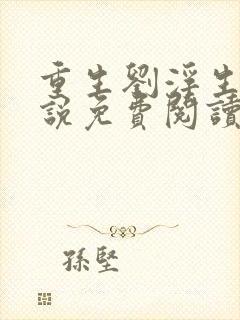 重生劉淫生
說免費閱讀
孫堅